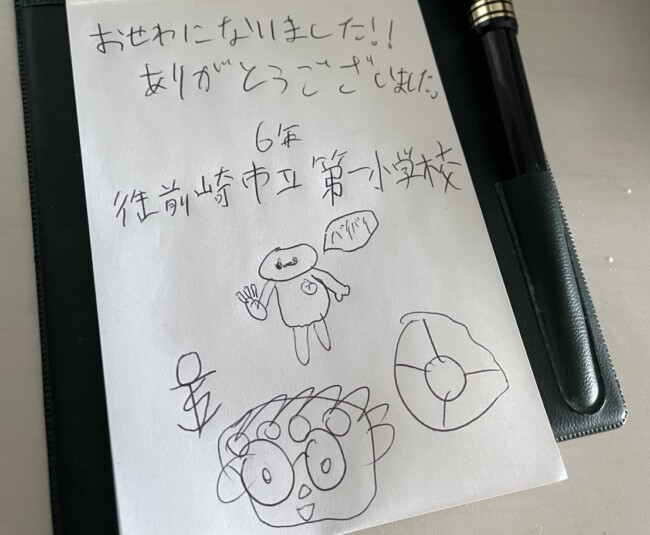 おせわになりました!!
ありがとうございました。
6年
往前崎市立第一小学校
バイバイ